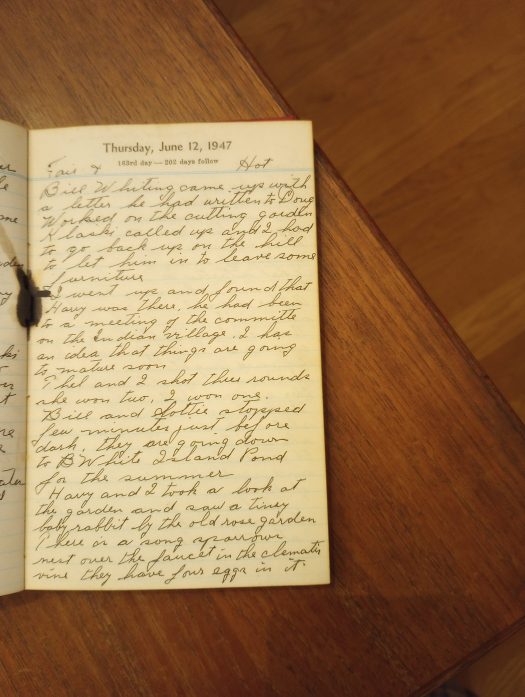 Thursday, June 12, 1947
163rd day — 202 days follow
Fair & Hot
Bill Whiting came up with
a letter he had written to Doug
Worked on the cutting garden
Klaski called up and I had
to go back up on the hill
to let him in to leave some
furniture
I went up and found that
Havy was there, he had been
to a meeting of the committe
on the Indian Village. I has
an idea that things are going
to mature soon.
Ethel and I shot three rounds
she won two, I won one.
Bill and Lottie stopped
few minutes just before
dark, they are going down
to B. White Island Pond
for the summer
Havy and I took a look at
the garden and saw a tiney
baby rabbit by the old rose garden
There is a song sparrow
nest over the faucet in the clematis
vine they have four eggs in it.